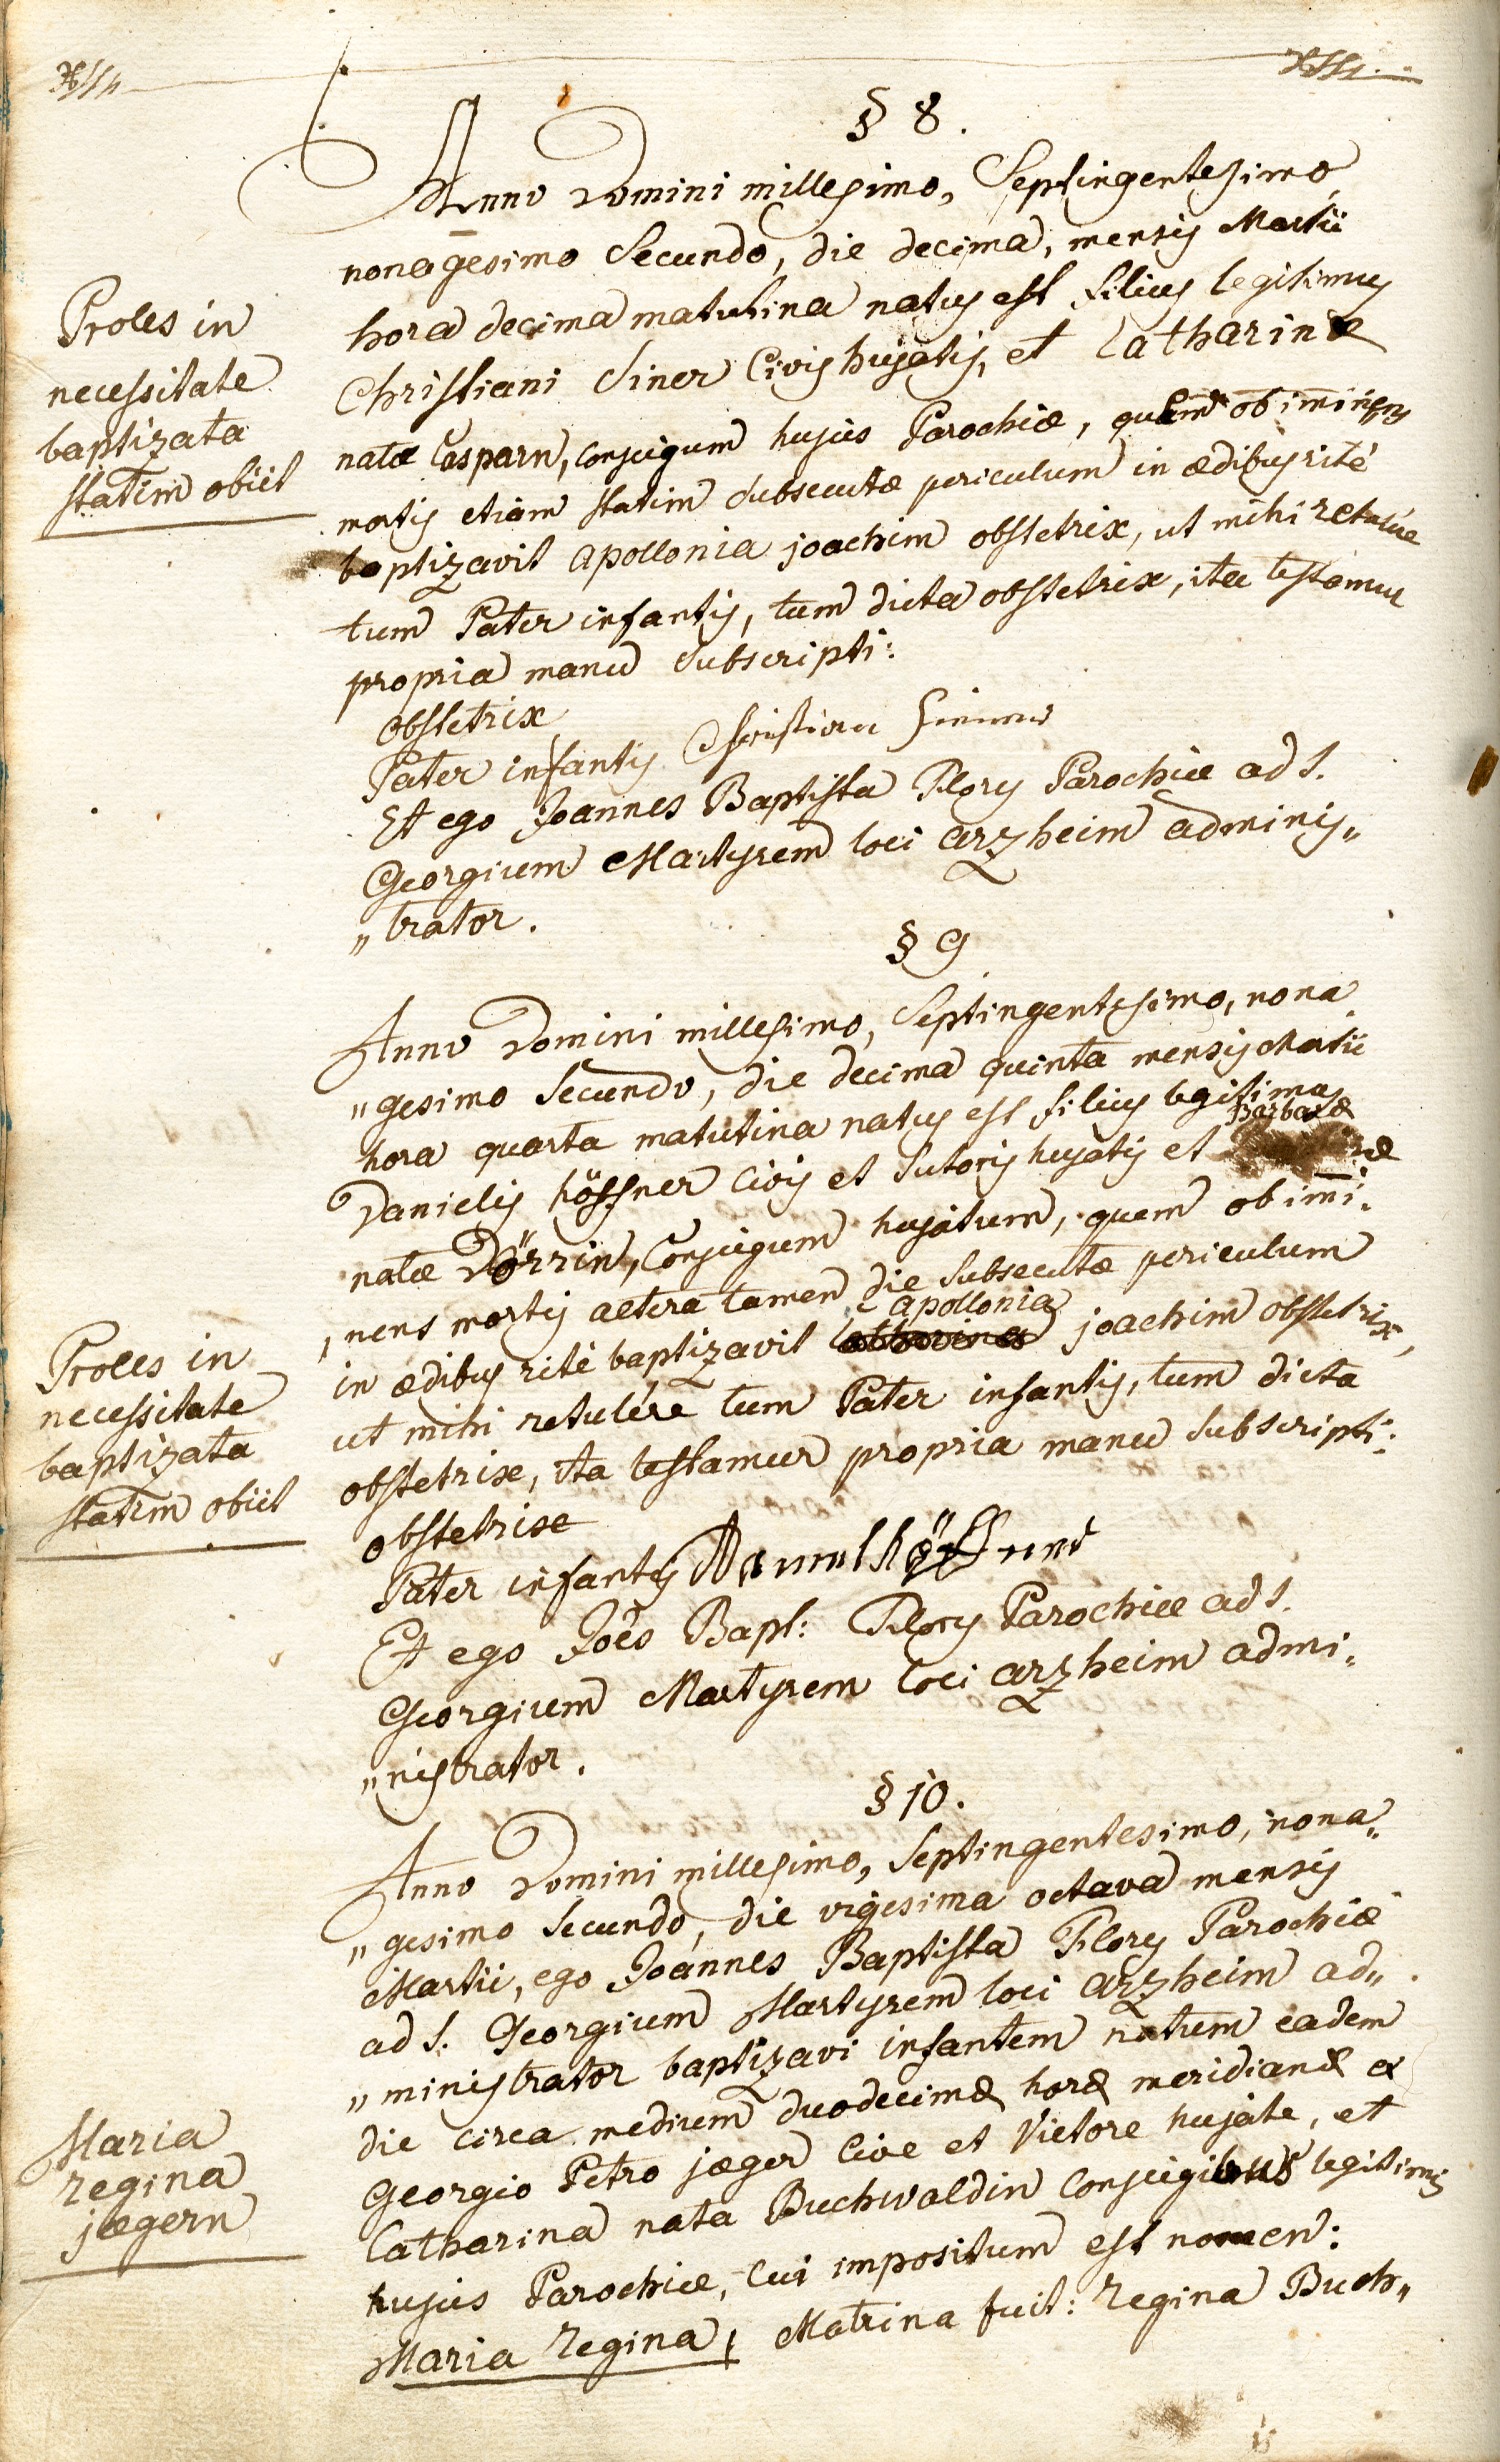 § 8.
Anno Domini millesimo, Septingentesimo,
nonagesimo Secundo, die decima, mensis Martii
hora decima matutina natus est filius legitimus
Christiani Siner Civis hujatis, et Catharinæ
natæ Casparn, conjugum hujus Parochiæ, quem ob imminens
mortis etiam statim subsecutæ periculum in ædibus rité
baptizavit apollonia joachim obstetrix, ut mihi retulére
tum Pater infantis, tum dicta obstetrix, ita testamur
propria manu subscripti:
obstetrix
Pater infantis Christian
Et ego Joannes Baptista Flory Parochiæ ad S.
Georgium Martyrem loci arzheim adminis„
„trator.
Proles in
necessitate
baptizata
statim obiit
§ 9
Anno Domini millesimo, Septingentesimo, nona„
„gesimo Secundo, die decima quinta mensis Martii
hora quarta matutina natus est filius legitimus
Danielis hössner Civis et Sutoris hujatis et Barbaræ
natæ Dörrin, Conjugum hujatum, quem ob immi„
„nens mortis aetera tamen die subsecutæ periculum
in ædibus rité baptizavit apollonia joachim obstetrix,
ut mihi retulére tum Pater infantis, tum dicta
obstetrix, ita testamur propria manu subscripti:
obstetrix
Pater infantis
Et ego Joēs Bapt: Flory Parochiæ ad S.
Georgium Martyrem loci arzheim admi„
„nistrator.
Proles in
necessitate
baptizata
statim obiit
§ 10.
Anno Domini millesimo, Septingentesimo, nona„
„gesimo Secundo, die vigesima octava mensis
Martii, ego Joannes Baptista Flory Parochiæ
ad S. Georgium Martyrem loci arzheim ad„
„ministrator baptizavi infantem natum eadem
die circa medium duodecimæ horæ meridianæ ex
Georgio Petro jæger Cive et Vietore hujate, et
Catharina nata Buchwaldin Conjugibus legitimis
hujus Parochiæ, Cui impositum est nomen:
Maria Regina, Matrina fuit: Regina Buch„
Maria
regina
jægern